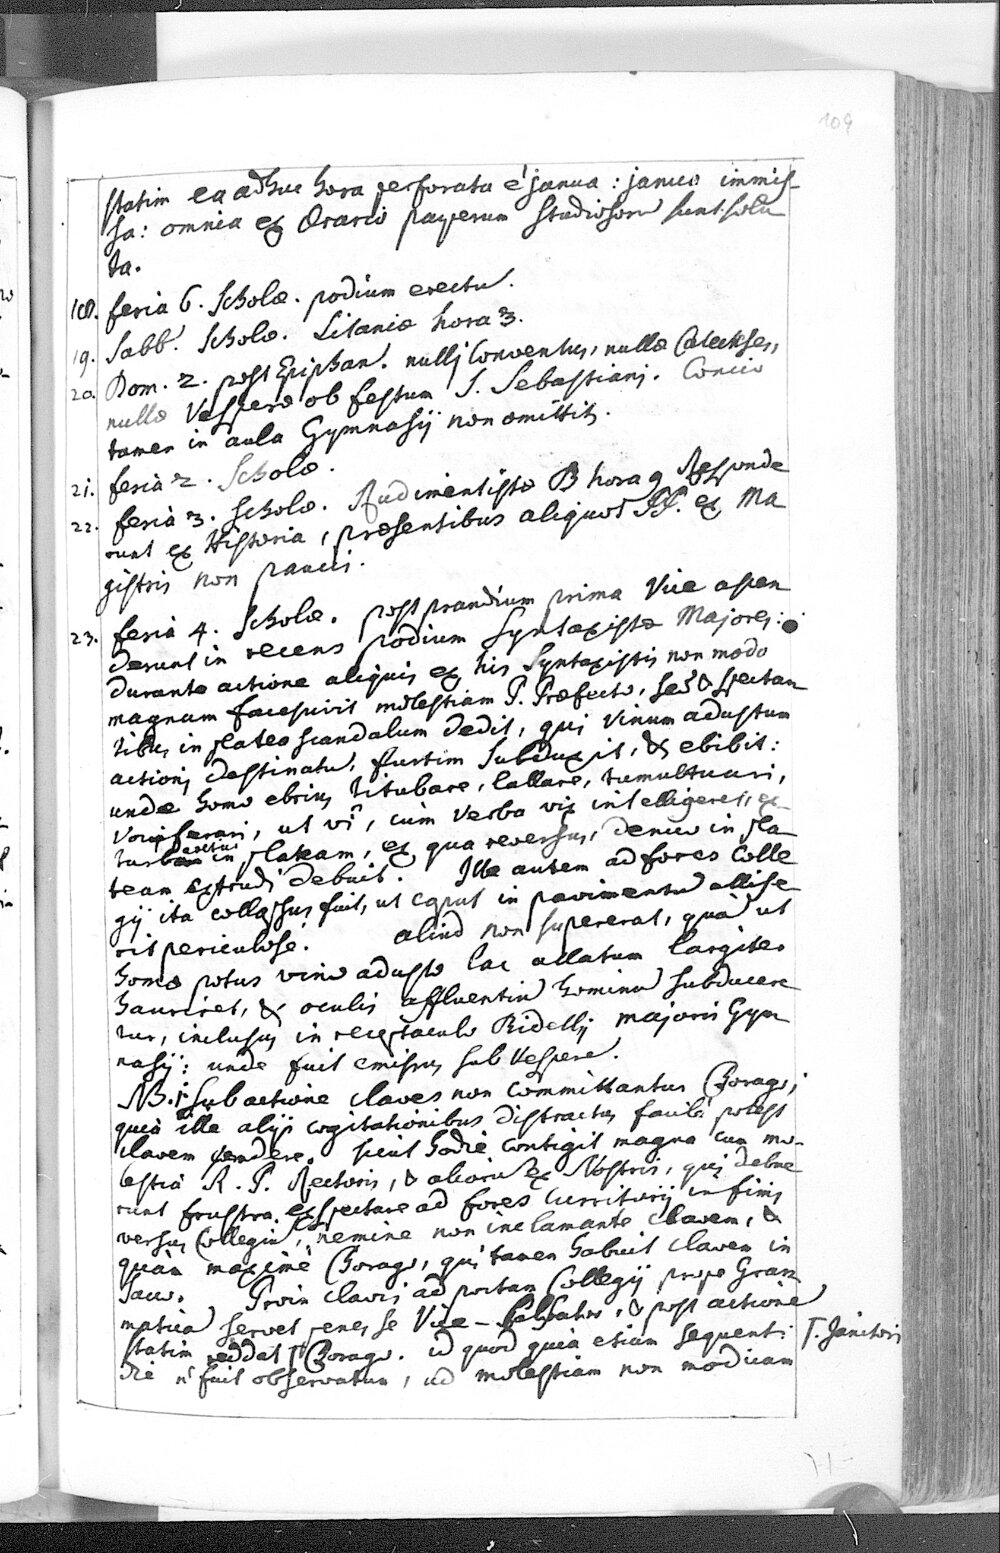 109
statim ea adhuc hora perforata è janua: janua immis-
sa: omnia ex Orario pauperum studiosorũ sunt solu
ta.
18. feria 6. Scholæ. podium erectũ.
19. Sabb. Scholæ. Litaniæ hora 3.
20. Dom. 2. post Epiphan. nullj Conventus, nullæ Cateches,
nullæ Vesperæ ob festum S. Sebastianj. Concio
tamen in aula Gymnasij non omittit.
21. feria 2. Scholæ.
22. feria 3. Scholæ. Rudimentistæ B hora 9 Responde
runt ex Historia, præsentibus aliquot PP. ex Ma
gistris non pauci.
23. feria 4. Scholæ. post prandium prima Vice ascen
derunt in recens podium Syntaxistæ Majores:
durante actione aliquis ex his Syntaxistis non modo
magnam facessivit molestiam P. Præfecto, sed & spectan
tibus in platea scandalum dedit, qui Vinum adustum
actionj destinatũ, furtim subduxit, & ebibit:
unde homo ebrius titubare, lallare, tumultuari,
Vociferari, ut vi, cum Verba vix intelligeret, ex-
in plateam, ex qua reversus, denuo in pla
team extrudi debuit. Ille autem ad fores Colle
gij ita collapsus fuit, ut caput in pavimentũ allise
rit periculosè. aliud non supererat, quàm ut
homo potus vino adusto lac allatum largiter
hauriret, & oculis affluentiũ hominũ subducere
tur, inclusus in receptaculo Ridellj majoris Gym
nasij: unde fuit emissus sub Vespere.
NB. 1. sub actione claves non committantur Borago;
quia ille alijs cogitationibus distractus facilè potest
clavem perdere. sicut hodie contigit magna cum mo-
lestia R. P. Rectoris, & aliorũ ex Nostris, qui debue
runt frustra expectare ad fores Curritorij infimj
versus Collegiũ, nemine non inclamante clavem, &
quàm maximè Borago, qui tamen habuit clavem in
sacco. Proin clavis ad portam Collegij prope Gram
matica servet penes se Vice-, & post actionẽ
statim reddat Γ Borago. id quod quia etiam sequenti Γ. Janitori
die ñ fuit observatum, ad molestiam non modicam